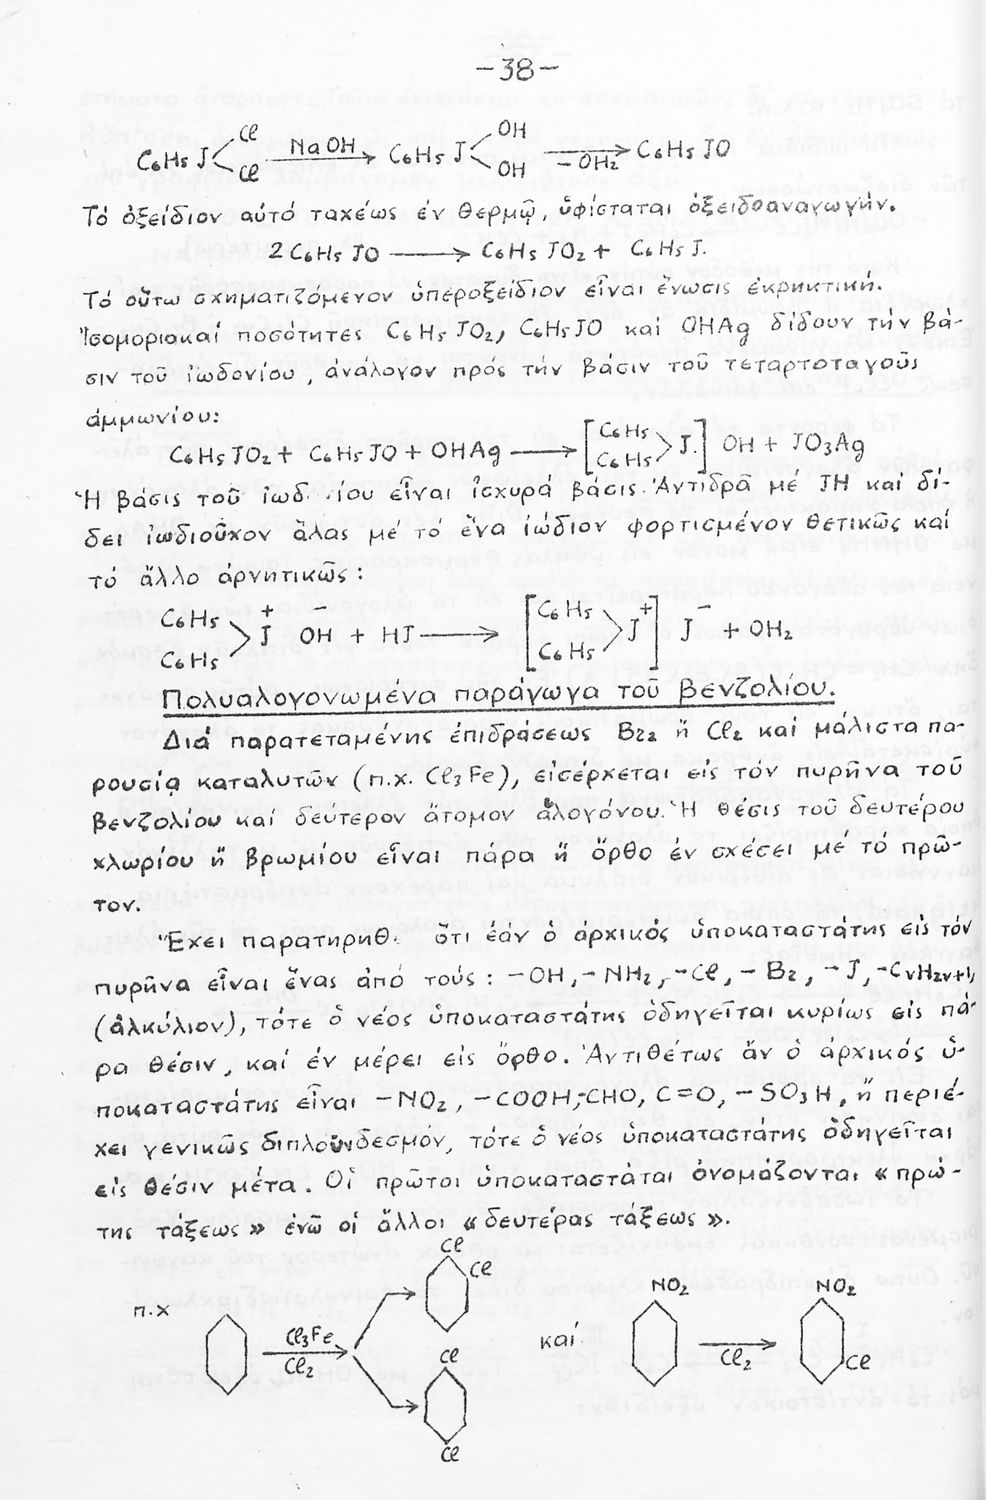 -38-
C₆H₅ J< Cl Cl NaOH → C₆H₅ J< OH OH -OH₂ → C₆H₅ JO
Τό ὀξείδιον αὐτό ταχέως ἐν θερμῷ, ὑφίσταται ὀξειδοαναγωγήν.
2 C₆H₅ JO → C₆H₅ JO₂ + C₆H₅ J.
Τό οὕτω σχηματιζόμενον ὑπεροξείδιον εἶναι ἔνωσις ἐκρηκτική.
Ἰσομοριακαί ποσότητες C₆H₅ JO₂, C₆H₅JO καί OHAg δίδουν τήν βά-
σιν τοῦ ἰωδονίου, ἀνάλογον πρός τήν βάσιν τοῦ τεταρτοταγοῦς
ἀμμωνίου:
C₆H₅JO₂ + C₆H₅JO + OHAg → [C₆H₅ C₆H₅ >J.] OH + JO₃Ag
Ἡ βάσις τοῦ εἶναι ἰσχυρά βάσις. Ἀντιδρᾶ μέ JH καί δί-
δει ἰωδιοῦχον ἅλας μέ τό ἕνα ἰώδιον φορτισμένον θετικῶς καί
τό ἄλλο ἀρνητικῶς:
C₆H₅ C₆H₅ >J⁺ OH⁻ + HJ → [C₆H₅ C₆H₅ >J⁺] J⁻ + OH₂
Πολυαλογονωμένα παράγωγα τοῦ βενζολίου.
Διά παρατεταμένης ἐπιδράσεως Br₂ ἤ Cl₂ καί μάλιστα πα-
ρουσίᾳ καταλυτῶν (π.χ. Cl₃Fe), εἰσέρχεται εἰς τόν πυρῆνα τοῦ
βενζολίου καί δεύτερον ἄτομον ἁλογόνου. Ἡ θέσις τοῦ δευτέρου
χλωρίου ἤ βρωμίου εἶναι πάρα ἤ ὄρθο ἐν σχέσει μέ τό πρῶ-
τον.
Ἔχει παρατηρηθ. ὅτι ἐάν ὁ ἀρχικός ὑποκαταστάτης εἰς τόν
πυρῆνα εἶναι ἕνας ἀπό τούς: -OH, -NH₂, -Cl, -Br, -J, -CᵥH₂ᵥ₊₁,
(ἀλκύλιον), τότε ὁ νέος ὑποκαταστάτης ὁδηγεῖται κυρίως εἰς πά-
ρα θέσιν, καί ἐν μέρει εἰς ὄρθο. Ἀντιθέτως ἄν ὁ ἀρχικός ὑ-
ποκαταστάτης εἶναι -NO₂, -COOH,-CHO, C=O, -SO₃H, ἤ περιέ-
χει γενικῶς διπλοῦν δεσμόν, τότε ὁ νέος ὑποκαταστάτης ὁδηγεῖται
εἰς θέσιν μέτα. Οἱ πρῶτοι ὑποκαταστάται ὀνομάζονται « πρώ-
της τάξεως » ἐνῶ οἱ ἄλλοι « δευτέρας τάξεως ».
π.χ Cl₃Fe Cl₂ Cl Cl Cl Cl καί NO₂ Cl₂ NO₂ Cl